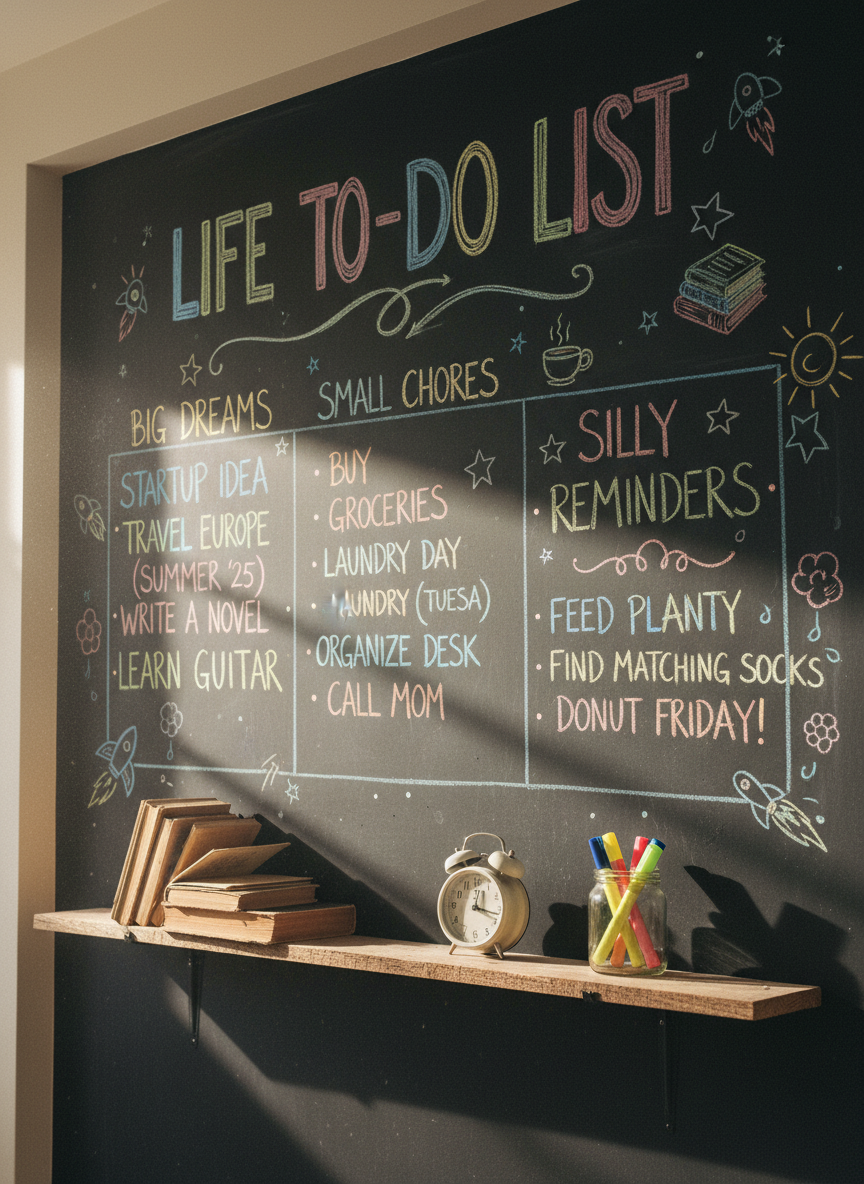 LIFE TO-DO LIST
BIG DREAMS
STARTUP IDEA
• TRAVEL EUROPE
(SUMMER '25)
• WRITE A NOVEL
• LEARN GUITAR
SMALL CHORES
• BUY
• GROCERIES
• LAUNDRY DAY
(TUESA)
• ORGANIZE DESK
• CALL MOM
SILLY
REMINDERS
• FEED PLANTY
• FIND MATCHING SOCKS
• DONUT FRIDAY!